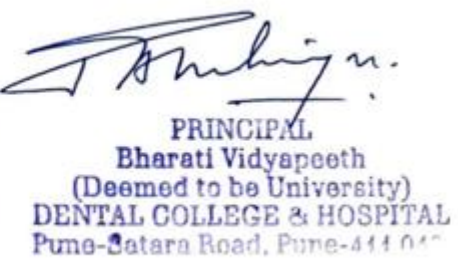 PRINCIPAL
Bharati Vidyapeeth
(Deemed to be University)
DENTAL COLLEGE & HOSPITAL
Pune-Satara Road, Pune-411 04